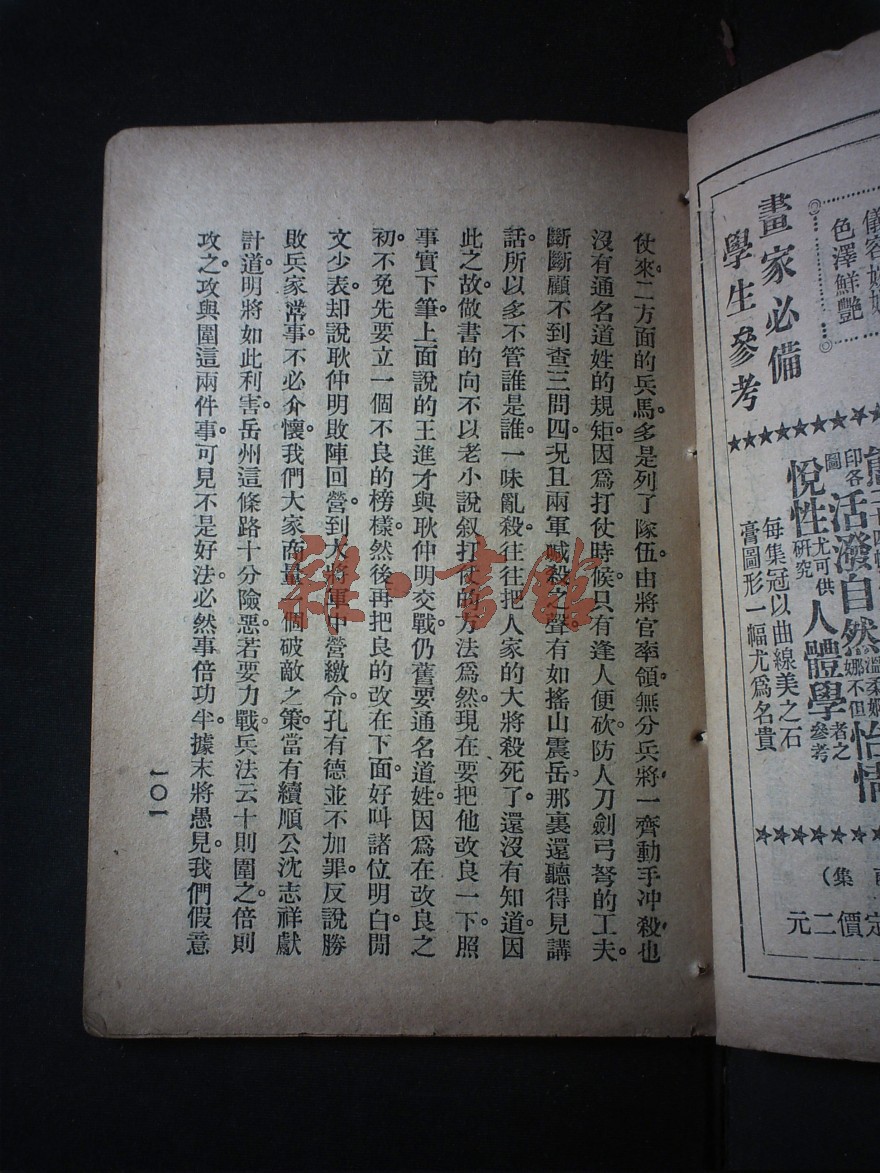 仗來。二方面的兵馬。多是列了隊伍。由將官率領。無分兵將。一齊動手冲殺。也
沒有通名道姓的規矩。因爲打仗時候。只有逢人便砍。防人刀劍弓弩的工夫。
斷斷顧不到查三問四。況且兩軍喊殺之聲。有如搖山震岳。那裏還聽得見講
話。所以多不管誰是誰。一味亂殺。往往把人家的大將殺死了。還沒有知道。因
此之故。做書的向不以老小說叙打仗的方法爲然。現在要把他改良一下。照
事實下筆。上面說的王進才與耿仲明交戰。仍舊要通名道姓。因爲在改良之
初。不免先要立一個不良的榜樣。然後再把良的改在下面。好叫諸位明白。閒
文少表。却說耿仲明敗陣回營。到大將軍中營繳令。孔有德並不加罪。反說勝
敗兵家常事。不必介懷。我們大家商量一個破敵之策。當有續順公沈志祥獻
計。道明將如此利害。岳州這條路十分險惡。若要力戰。兵法云十則圍之。倍則
攻之。攻與圍這兩件事。可見不是好法。必然事倍功半。據末將愚見。我們假意
一〇一
儀容
色澤鮮艷
畫家必備
學生參考
★★★★★★★★★
圖印各
活潑自然
溫柔
娜不但
怡情
悅性
研究
尤可供
人體學
者之
參考
每集冠以曲線美之石
膏圖形一幅尤爲名貴
★★★★★★★★
集）
定價二元
雜·書館